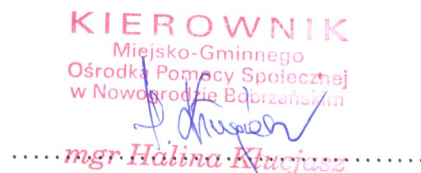 KIEROWNIK
Miejsko-Gminnego
Ośrodka Pomocy Społecznej
w Nowogrodzie Bobrzańskim
mgr Halina Kłucjasz